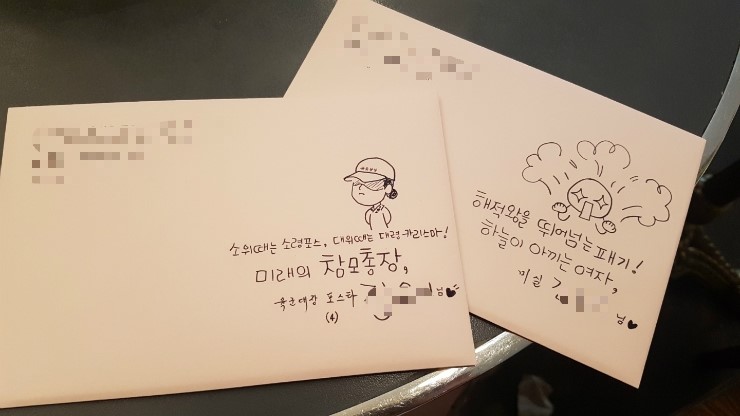 소위때는 소령포스, 대위때는 대령카리스마!
미래의 참모총장,
육군대장 포스타
님
(4)
해적왕을 뛰어넘는 패기!
하늘이 아끼는 여자,
미실
님